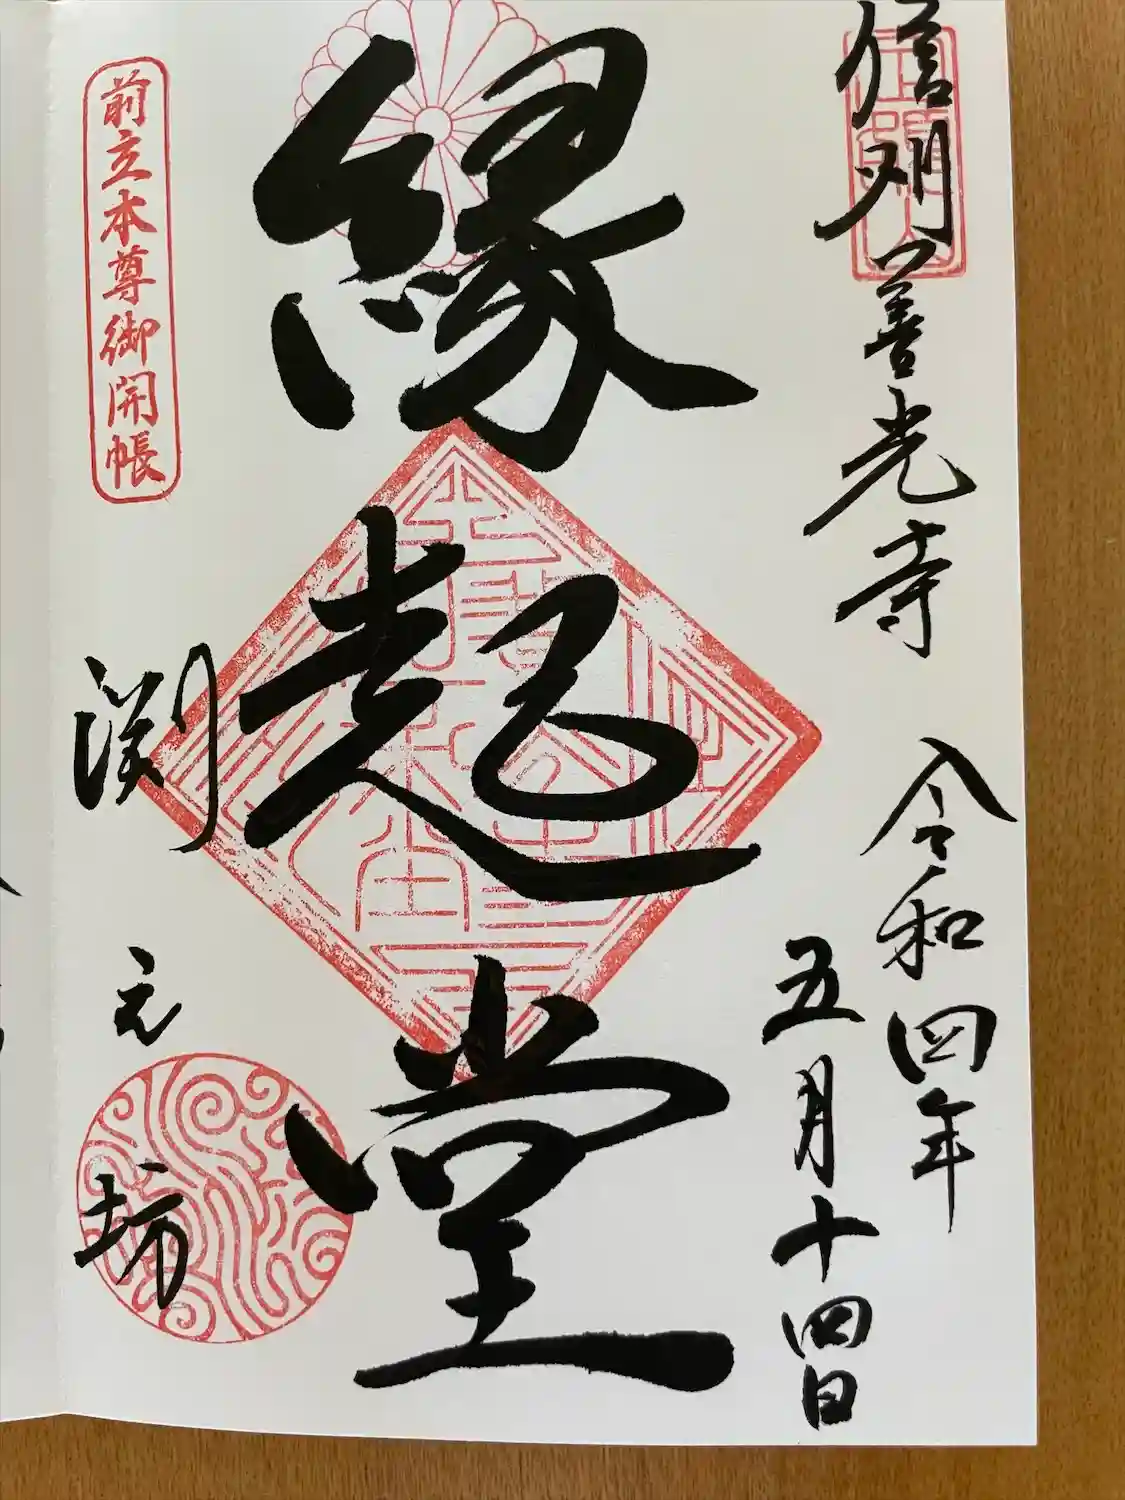 信州善光寺
令和四年
五月十四日
縁起堂
前立本尊御開帳
渕元坊